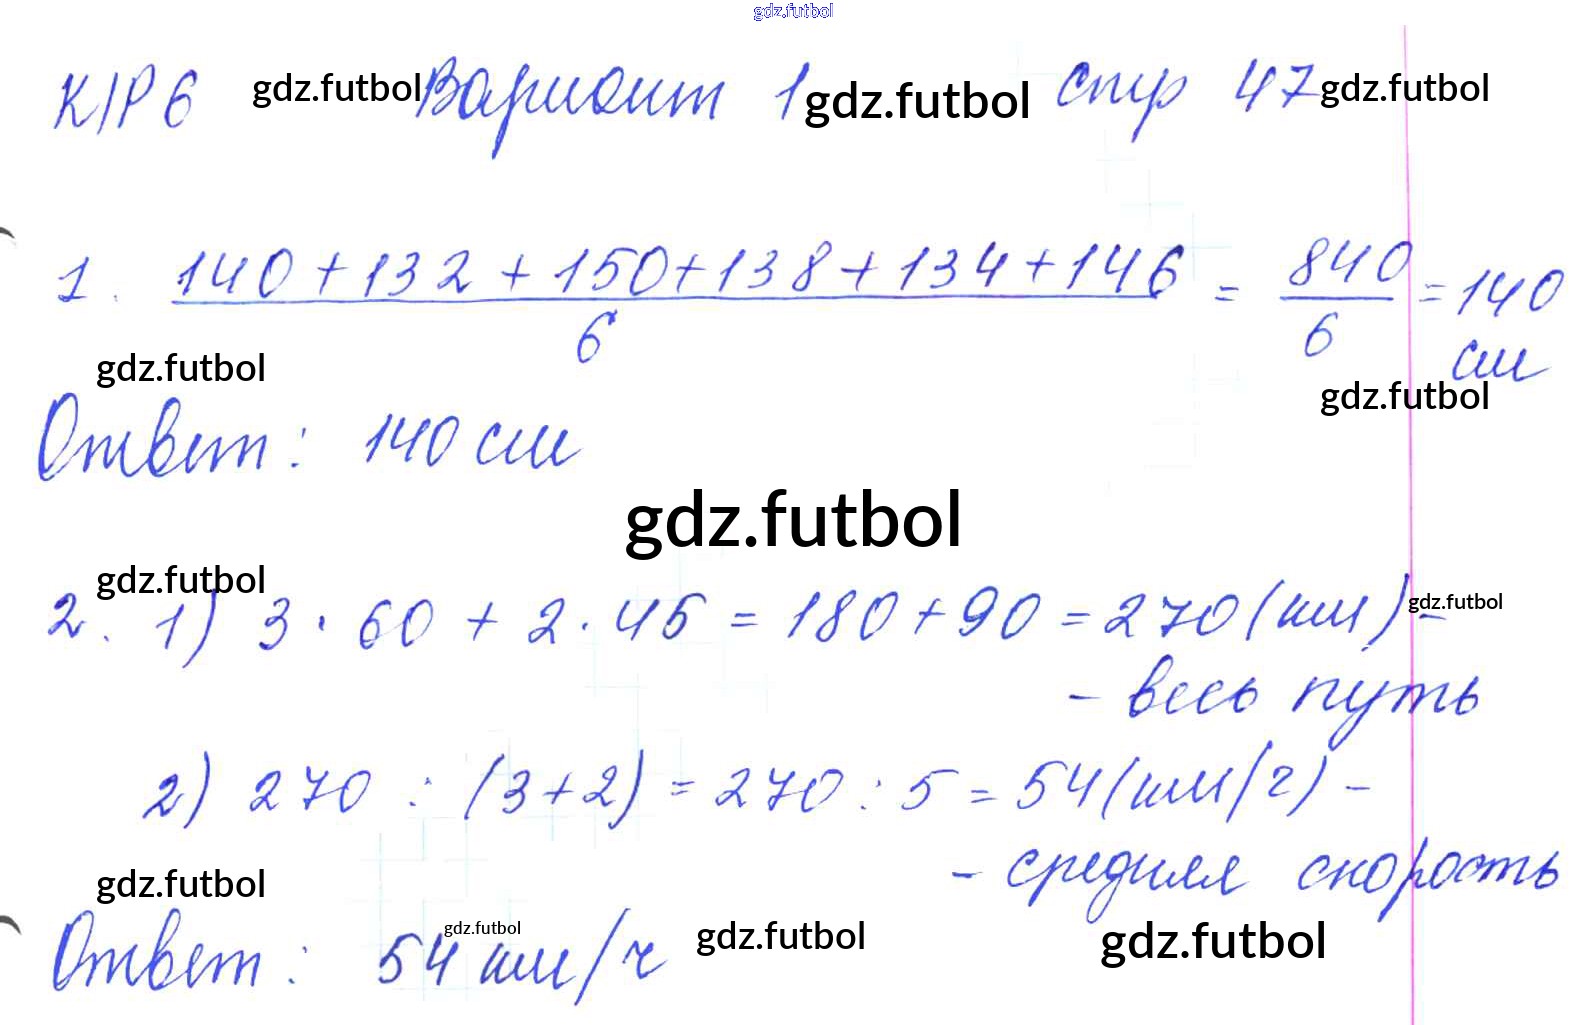 gdz.futbol
К/Р 6 gdz.futbol Вариант 1 gdz.futbol стр 47 gdz.futbol
1. 140 + 132 + 150 + 138 + 134 + 146 = 840 = 140
6 6 см
gdz.futbol gdz.futbol
Ответ: 140 см
gdz.futbol
gdz.futbol
2. 1) 3 · 60 + 2 · 45 = 180 + 90 = 270 (км) - gdz.futbol
- весь путь
2) 270 : (3 + 2) = 270 : 5 = 54 (км/ч) -
- средняя скорость
gdz.futbol
Ответ: 54 км/ч gdz.futbol gdz.futbol gdz.futbol